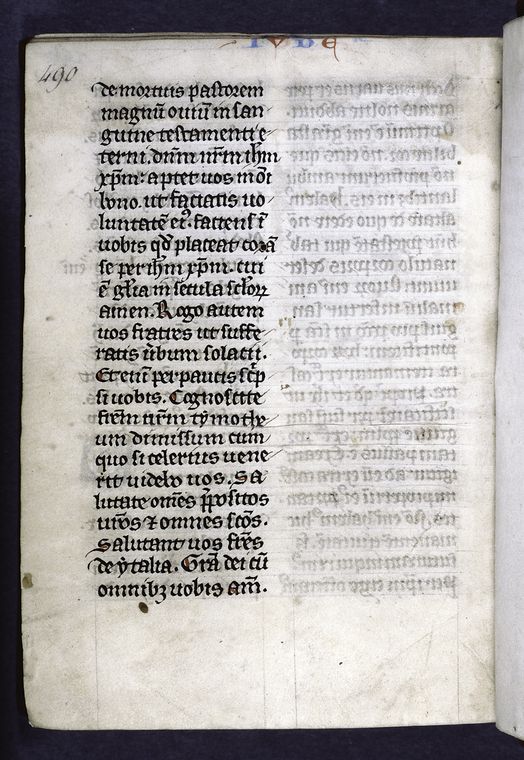 490
IVDE
de mortuis pastorem
magnū ouiū in san
guine testamenti e
terni. dn̄m nr̄m ih̄m
xp̄m: aptet uos in ōi
bono. ut faciatis uo
luntatē ei⁹. faciens ī
uobis qd̄ placeat corā
se per ih̄m xp̄m. cui
ē gl̄ia in secula sc̄loꝝ
amen. Rogo autem
uos fratres ut suffe
ratis ūbum solacii.
Et eni ̄ per paucis sc̄p
si uobis. Cognoscite
fr̄em nr̄m tymothe
um dimissum cum
quo si celerius uene
rit uidebo uos. Sa
lutate om̄es p̄positos
ur̄os ⁊ omnes sc̄os.
Salutant uos fr̄es
de ytalia. Gr̄a dei cū
omnibꝫ uobis am̄.